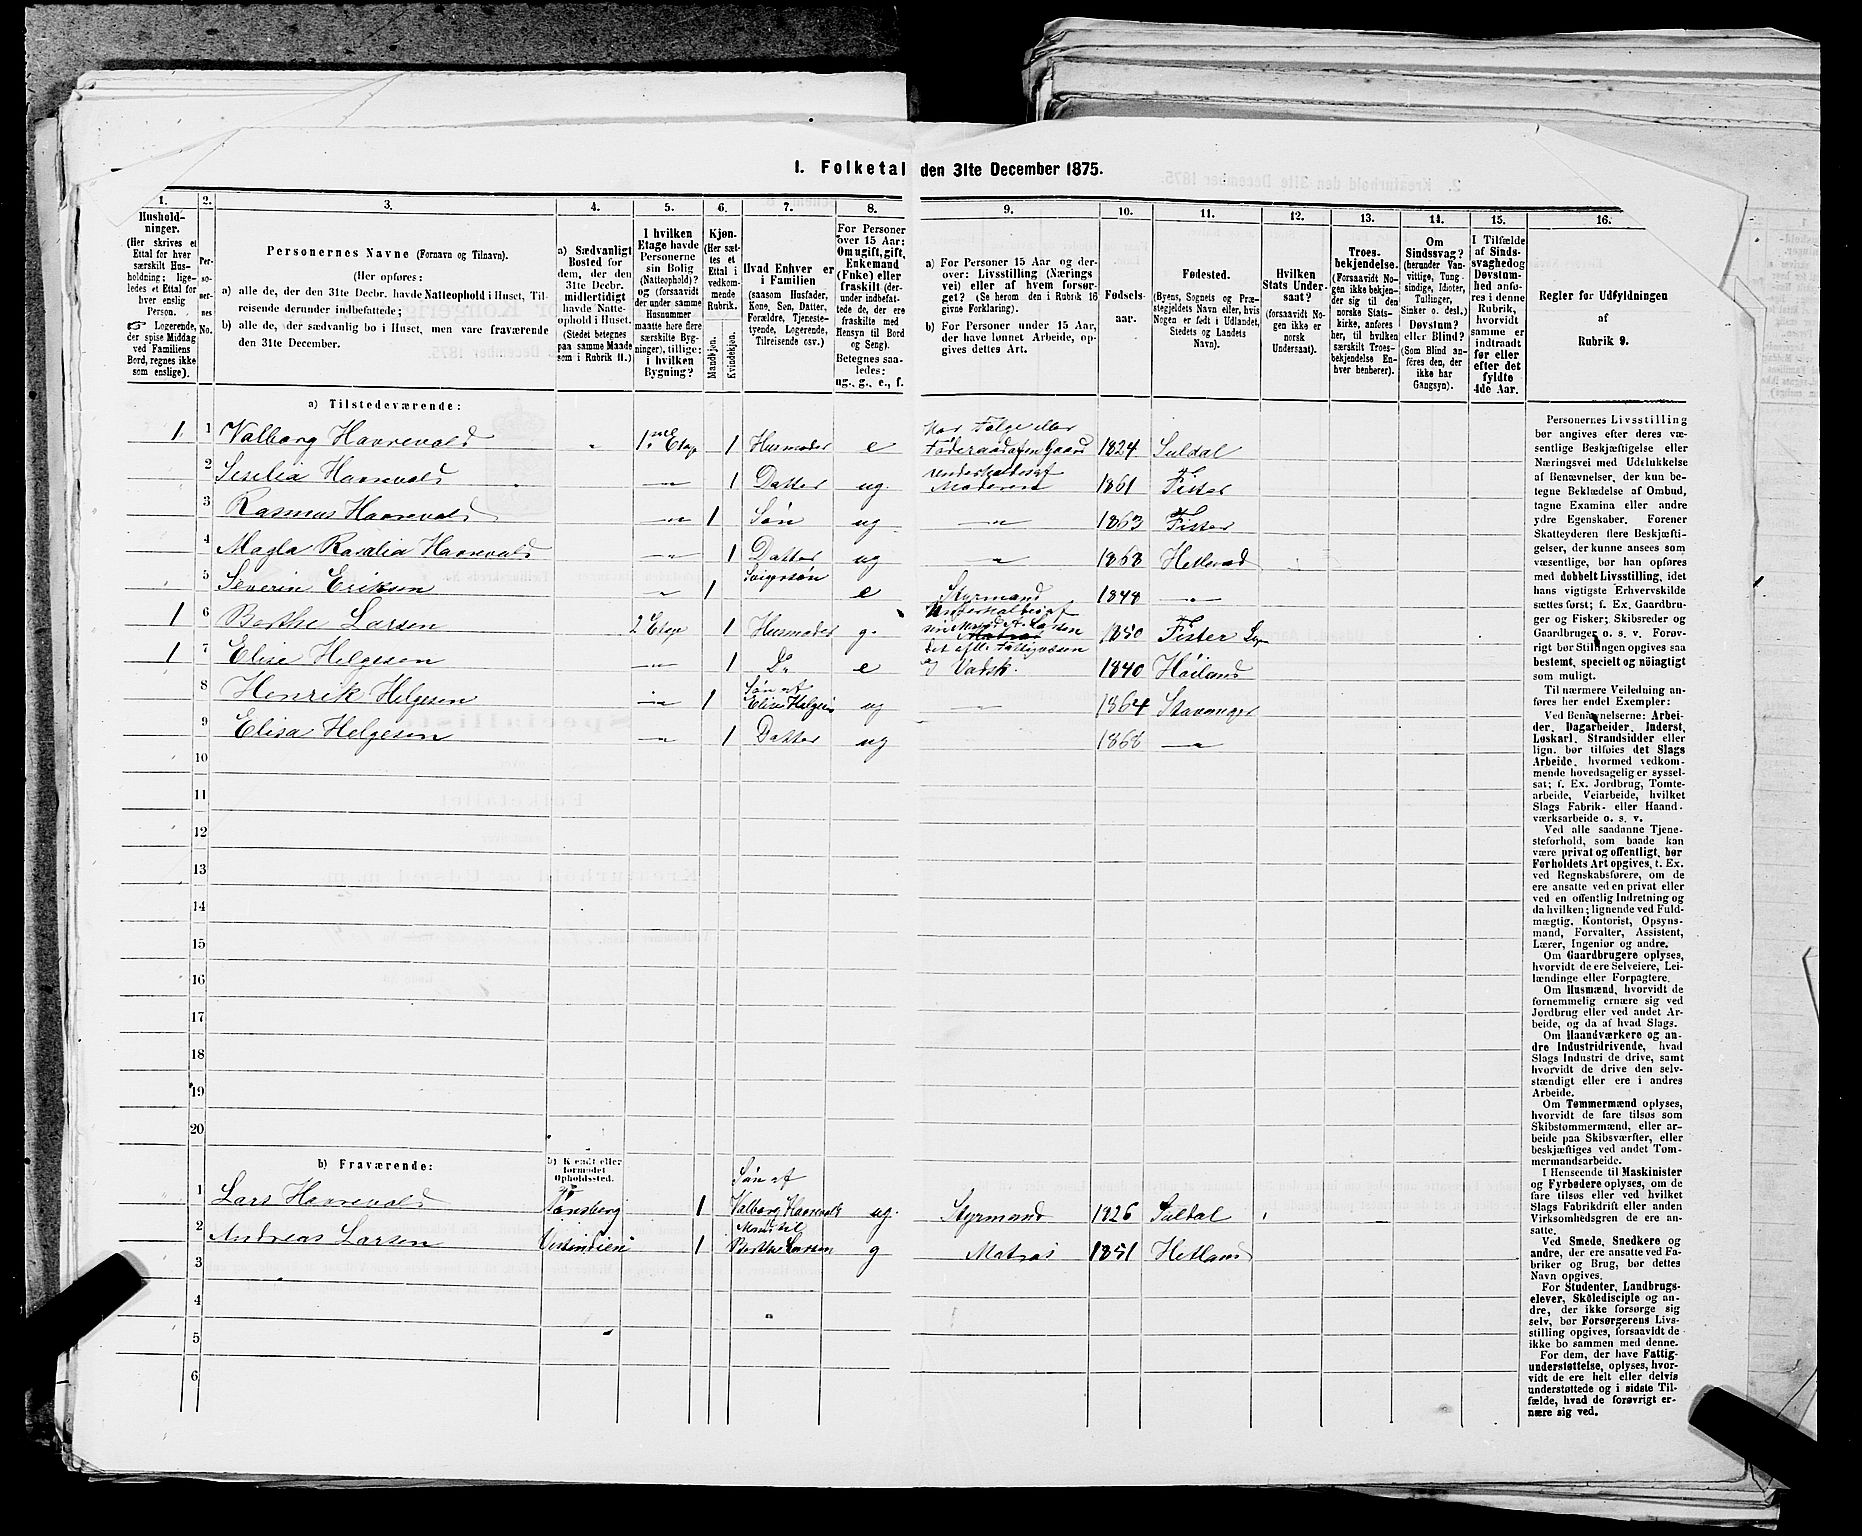 1. Folketal den 31te December 1875.
1. 2. 3. 4. 5. 6. 7. 8. 9. 10. 11. 12. 13. 14. 15. 16.
Hushold-
ninger.
(Her skrives et
Ettal for hver
særskilt Hus-
holdning; lige-
ledes et Ettal for
hver enslig
Person.
☞ Logerende,
der spise Middag
ved Familiens
Bord, regnes ikke
som enslige).
Per-
so-
ner-
nes
No.
Personernes Navne (Fornavn og Tilnavn).
(Her opføres:
a) alle de, der den 31te Decbr. havde Natteophold i Huset, Til-
reisende derunder indbefattede;
b) alle de, der sædvanlig bo i Huset, men vare fraværende
den 31te December.
a) Sædvanligt
Bosted for
dem, der den
31te Decbr.
midlertidigt
havde Natte-
ophold i Huset.
(Stedet betegnes
paa samme Maade
som i Rubrik 11.)
I hvilken
Etage havde
Personerne
sin Bolig
(Natteophold)?
og (forsaavidt
der under samme
Husnummer
maatte høre flere
særskilte Byg-
ninger), tillige:
i hvilken
Bygning?
Kjøn.
(Her sæt-
tes et
Ettal i
vedkom-
mende
Rubrik.
Mandkjøn.
Kvindekjøn.
Hvad Enhver er
i Familien
(saasom Husfader,
Kone, Søn, Datter,
Forældre, Tjeneste-
tyende, Logerende,
Tilreisende osv.)
For Personer
over 15 Aar:
Om ugift, gift,
Enkemand
(Enke) eller
fraskilt (der-
under indbefat-
tede de, der ere
fraskilte med
Hensyn til Bord
og Seng).
Betegnes saa-
ledes:
ug., g., e., f.
a) For Personer 15 Aar og der-
over: Livsstilling (Nærings
vei) eller af hvem forsør-
get? (Se herom den i Rubrik 16
givne Forklaring).
b) For Personer under 15 Aar,
der have lønnet Arbeide, op-
gives dettes Art.
Fødsels-
aar.
Fødested.
(Byens, Sognets og Præ-
stegjeldets Navn eller, hvis
Nogen er født i Udlandet,
Stedets og Landets
Navn).
Hvilken
Stats Under-
saat?
(forsaavidt No-
gen ikke er
norsk
Undersaat).
Troes-
bekjendelse.
(Forsaavidt No-
gen ikke bekjen-
der sig til den
norske Stats-
kirke, anføres
her, til hvilken
særskilt Troes-
bekjendelse En-
hver henhører).
Om
Sindssvag?
(herunder Van-
vittige, Idioter,
Tullinger,
Sinker o. desl.)
Døvstum?
eller Blind?
(Som Blind an-
føres den, der
ikke har
Gangsyn).
I Tilfælde
af Sinds-
svaghed og
Døvstum-
hed anfø-
res i denne
Rubrik,
hvorvidt
samme er
indtraadt
før eller
efter det
fyldte
4de Aar.
Regler for Udfyldningen
af
Rubrik 9.
a) Tilstedeværende:
1 1 Valborg Haavevold 1 Etag 1 Husmoder e 1824 Suldal
2 Seselia 1 Datter ug. 1861 Fister
3 Rasmus 1 Søn ug 1863 Fister
4 Magla Rasalia 1 Datter ug 1868
5 Severin Eriksen 1 Svigersøn e Styrmand 1844
1 6 Berthe Larsen 2 Etag 1 Husmoder g. 1850 Fister
1 7 Elise Helgesen 1 Do e og Vadsk. 1840 Høiland
8 Henrik Helgesen 1 Søn af Elise ug 1864 Stavanger
9 Elisa Helgesen 1 Datter ug 1868
10
11
12
13
14
15
16
17
18
19
20
b) Fraværende:
b) Kjendt eller
formodet
Opholdssted.
1 Lars Tønsberg 1 Søn af Valborg ug. Styrmand 1826 Suldal
2 Andreas Larsen Vestindien 1 Mand til Berthe Larsen g Matros 1851 Hetland
3
4
5
6
Personernes Livsstilling
bør angives efter deres væ-
sentlige Beskjæftigelse eller
Næringsvei med Udelukkelse
af Benævnelser, der kun be-
tegne Beklædelse af Ombud,
tagne Examina eller andre
ydre Egenskaber. Forener
Skatteyderen flere Beskjæfti-
gelser, der kunne ansees som
væsentlige, bør han opføres
med dobbelt Livsstilling, idet
hans vigtigste Erhvervskilde
sættes først; f. Ex. Gaardbru-
ger og Fisker; Skibsreder og
Gaardbruger o. s. v. Forøv-
rigt bør Stillingen opgives saa
bestemt, specielt og nöiagtigt
som muligt.
Til nærmere Veiledning an-
føres her endel Exempler:
Ved Benævnelserne: Arbei-
der, Dagarbeider, Inderst,
Løskarl, Strandsidder eller
lign. bør tilføies det Slags
Arbeide, hvormed vedkom-
mende hovedsagelig er syssel-
sat; f. Ex. Jordbrug, Tomte-
arbeide, Veiarbeide, hvilket
Slags Fabrik- eller Haand-
værksarbeide o. s. v.
Ved alle saadanne Tjene-
steforhold, som baade kan
være privat og offentligt, bør
Forholdets Art opgives, t. Ex.
ved Regnskabsførere, om de
ere ansatte ved en privat eller
ved en offentlig Indretning og
da hvilken; lignende ved Fuld-
mægtig, Kontorist, Opsyns-
mand, Forvalter, Assistent,
Lærer, Ingeniør og andre.
Om Gaardbrugere oplyses,
hvorvidt de ere Selveiere, Lei-
lændinge eller Forpagtere.
Om Husmænd, hvorvidt de
fornemmelig ernære sig ved
Jordbrug eller ved andet Ar-
beide, og da af hvad Slags.
Om Haandværkere og an-
dre Industridrivende, hvad
Slags Industri de drive, samt
hvorvidt de drive den selv-
stændigt eller ere i andres
Arbeide.
Om Tømmermænd oplyses,
hvorvidt de fare tilsøs som
Skibstømmermænd, eller ar-
beide paa Skibsværfter, eller
beskjæftiges ved andet Tøm-
mermandsarbeide.
I Henseende til Maskinister
og Fyrbødere oplyses, om de
fare tilsøs eller ved hvilket
Slags Fabrikdrift eller anden
Virksomhedsgren de ere an-
satte.
Ved Smede, Snedkere og
andre, der ere ansatte ved Fa-
briker og Brug, bør dettes
Navn opgives.
For Studenter, Landbrugs-
elever, Skoledisciple og an-
dre, der ikke forsørge sig
selv, bør Forsørgerens Livs-
stilling opgives, forsaavidt de
ikke bo sammen med denne.
For dem, der have Fattig-
understøttelse, oplyses, hvor-
vidt de ere helt eller delvis
understøttede og i sidste Til-
fælde, hvad de forøvrigt er-
nære sig ved.